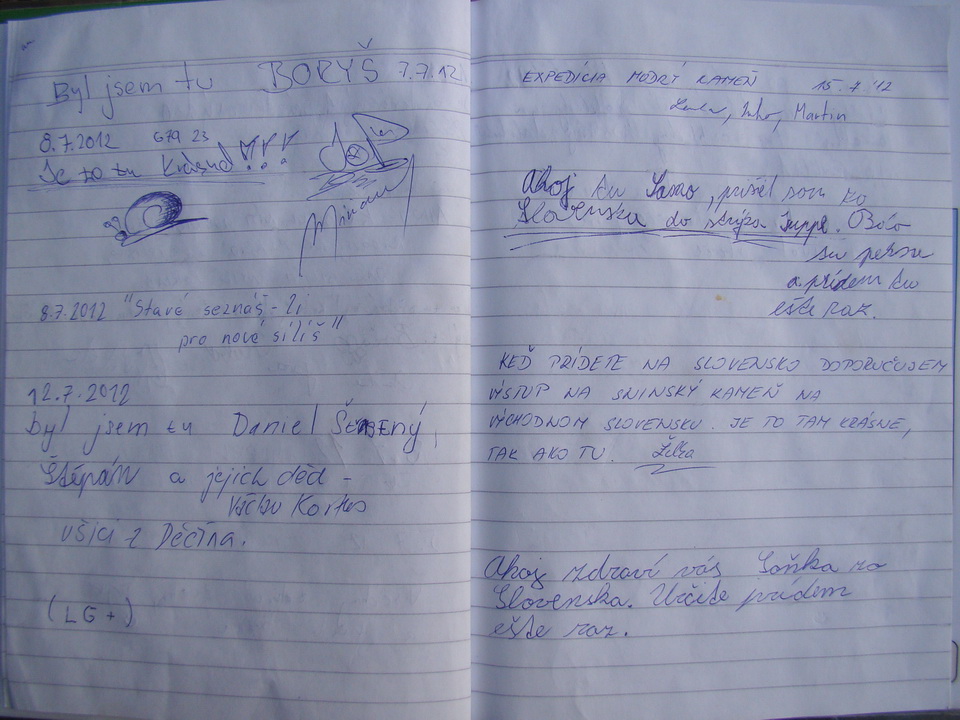 Byl jsem tu BORYŠ 7.7.12
8.7.2012 G79 23
Je to tu Krásné!!!
8.7.2012 "Stavé seznáš-li
pro nové sílíš"
12.7.2012
byl jsem tu Daniel
Štěpán a jejich děd -
Václav
všici z Děčína.
(LG+)
EXPEDÍCIA MODRÝ KAMEŇ 15.7.'12
Martin
Ahoj tu Samo, prišel som zo
Slovenska do strýka. Bolo
su
a prídem tu
ešte raz.
KEĎ PRÍDETE NA SLOVENSKO DOPORUČUJEM
VÝSTUP NA SNINSKÝ KAMEŇ NA
VÝCHODNOM SLOVENSKU. JE TO TAM KRÁSNE,
TAK AKO TU.
Ahoj zdraví vás Soňka zo
Slovenska. Určite prídem
ešte raz.